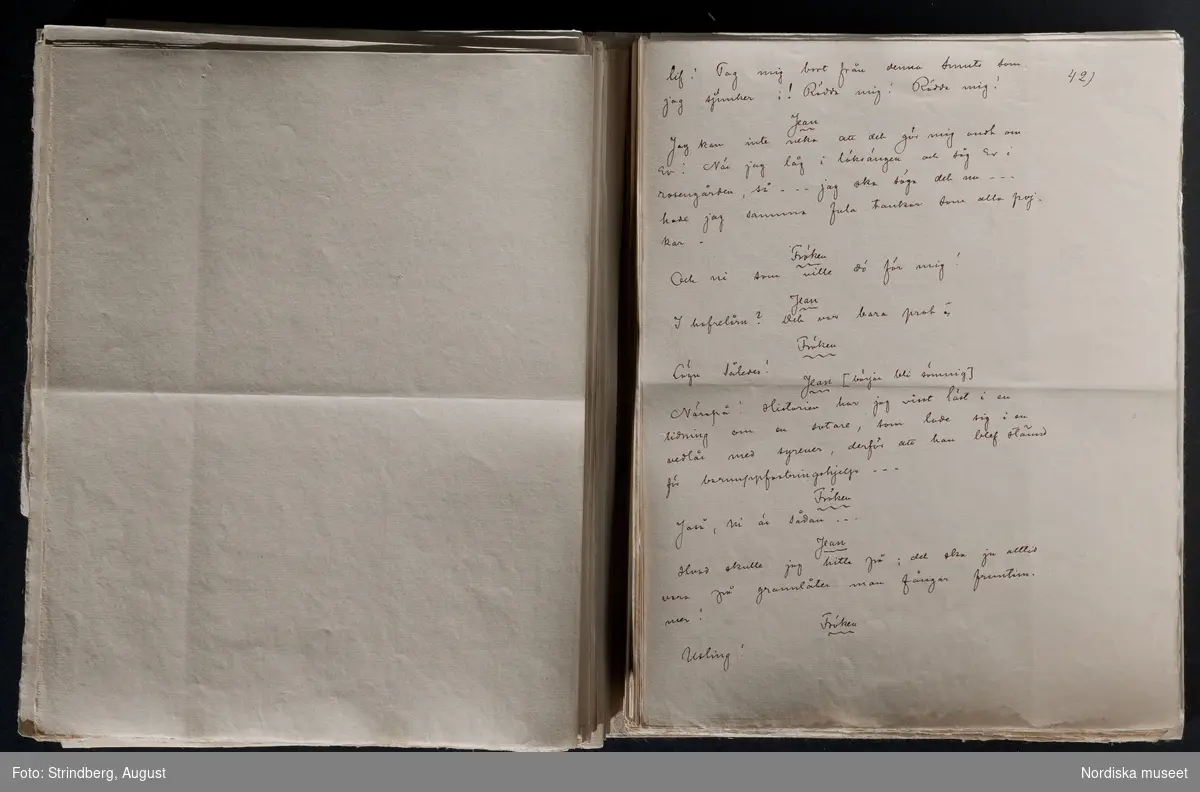 lif! Tag mig bort från denna smuts som
42)
jag sjunker i! Rädda mig! Rädda mig!
Jean
Jag kan inte neka att det gör mig ondt om
Er! När jag låg i löksängen och såg Er i
rosengården, så --- jag ska säga det nu ---
hade jag samma fula tankar som alla poj-
kar -
Fröken
Och ni som ville dö för mig!
Jean
I hafrelårn? Det var bara prat
Fröken
Lögn således!
Jean [börjar bli sömnig]
Närapå! Historien har jag visst läst i en
tidning om en sotare, som lade sig i en
vedlår med syrener, derför att han blef stämd
för barnuppfostringshjelp ---
Fröken
Jaså, ni är sådan ---
Jean
Hvad skulle jag hitta på; det ska ju alltid
vara på grannlåter man fångar fruntim-
mer!
Fröken
Usling!
Foto: Strindberg, August
Nordiska museet